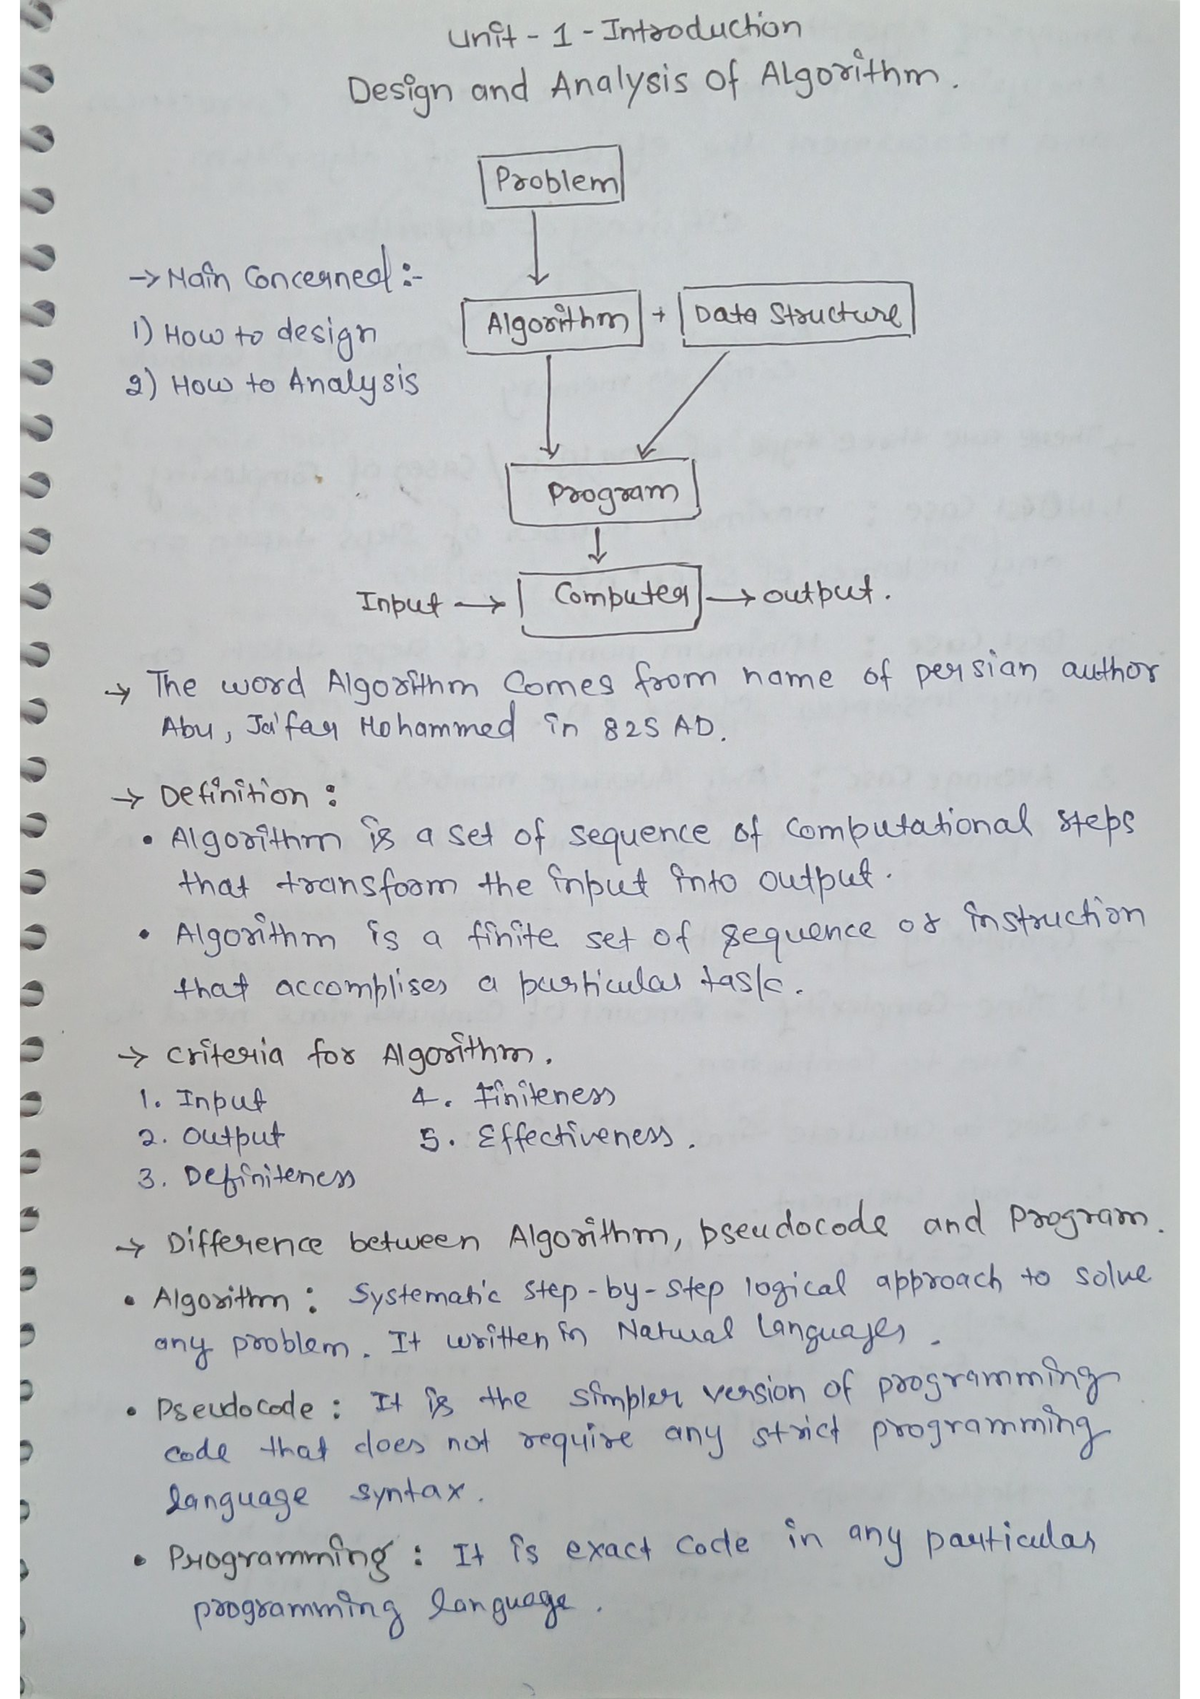 Unit - 1 - Introduction
Design and Analysis of Algorithm.
Problem
→ Main Concerned :-
1) How to design
2) How to Analysis
Algorithm + Data Structure
Program
Input → Computer → output.
→ The word Algorithm Comes from name of persian author
Abu, Ja'far Mohammed in 825 AD.
→ Definition :
• Algorithm is a set of sequence of Computational steps
that transform the input into output.
• Algorithm is a finite set of sequence or instruction
that accomplises a particular task.
→ Criteria for Algorithm.
1. Input 4. Finiteness
2. Output 5. Effectiveness.
3. Definiteness
→ Difference between Algorithm, pseudocode and Program.
• Algorithm : Systematic step-by-step logical approach to solve
any problem. It written in Natural Languages.
• Pseudocode : It is the simpler version of programming
code that does not require any strict programming
language syntax.
• Programming : It is exact code in any particular
programming language.